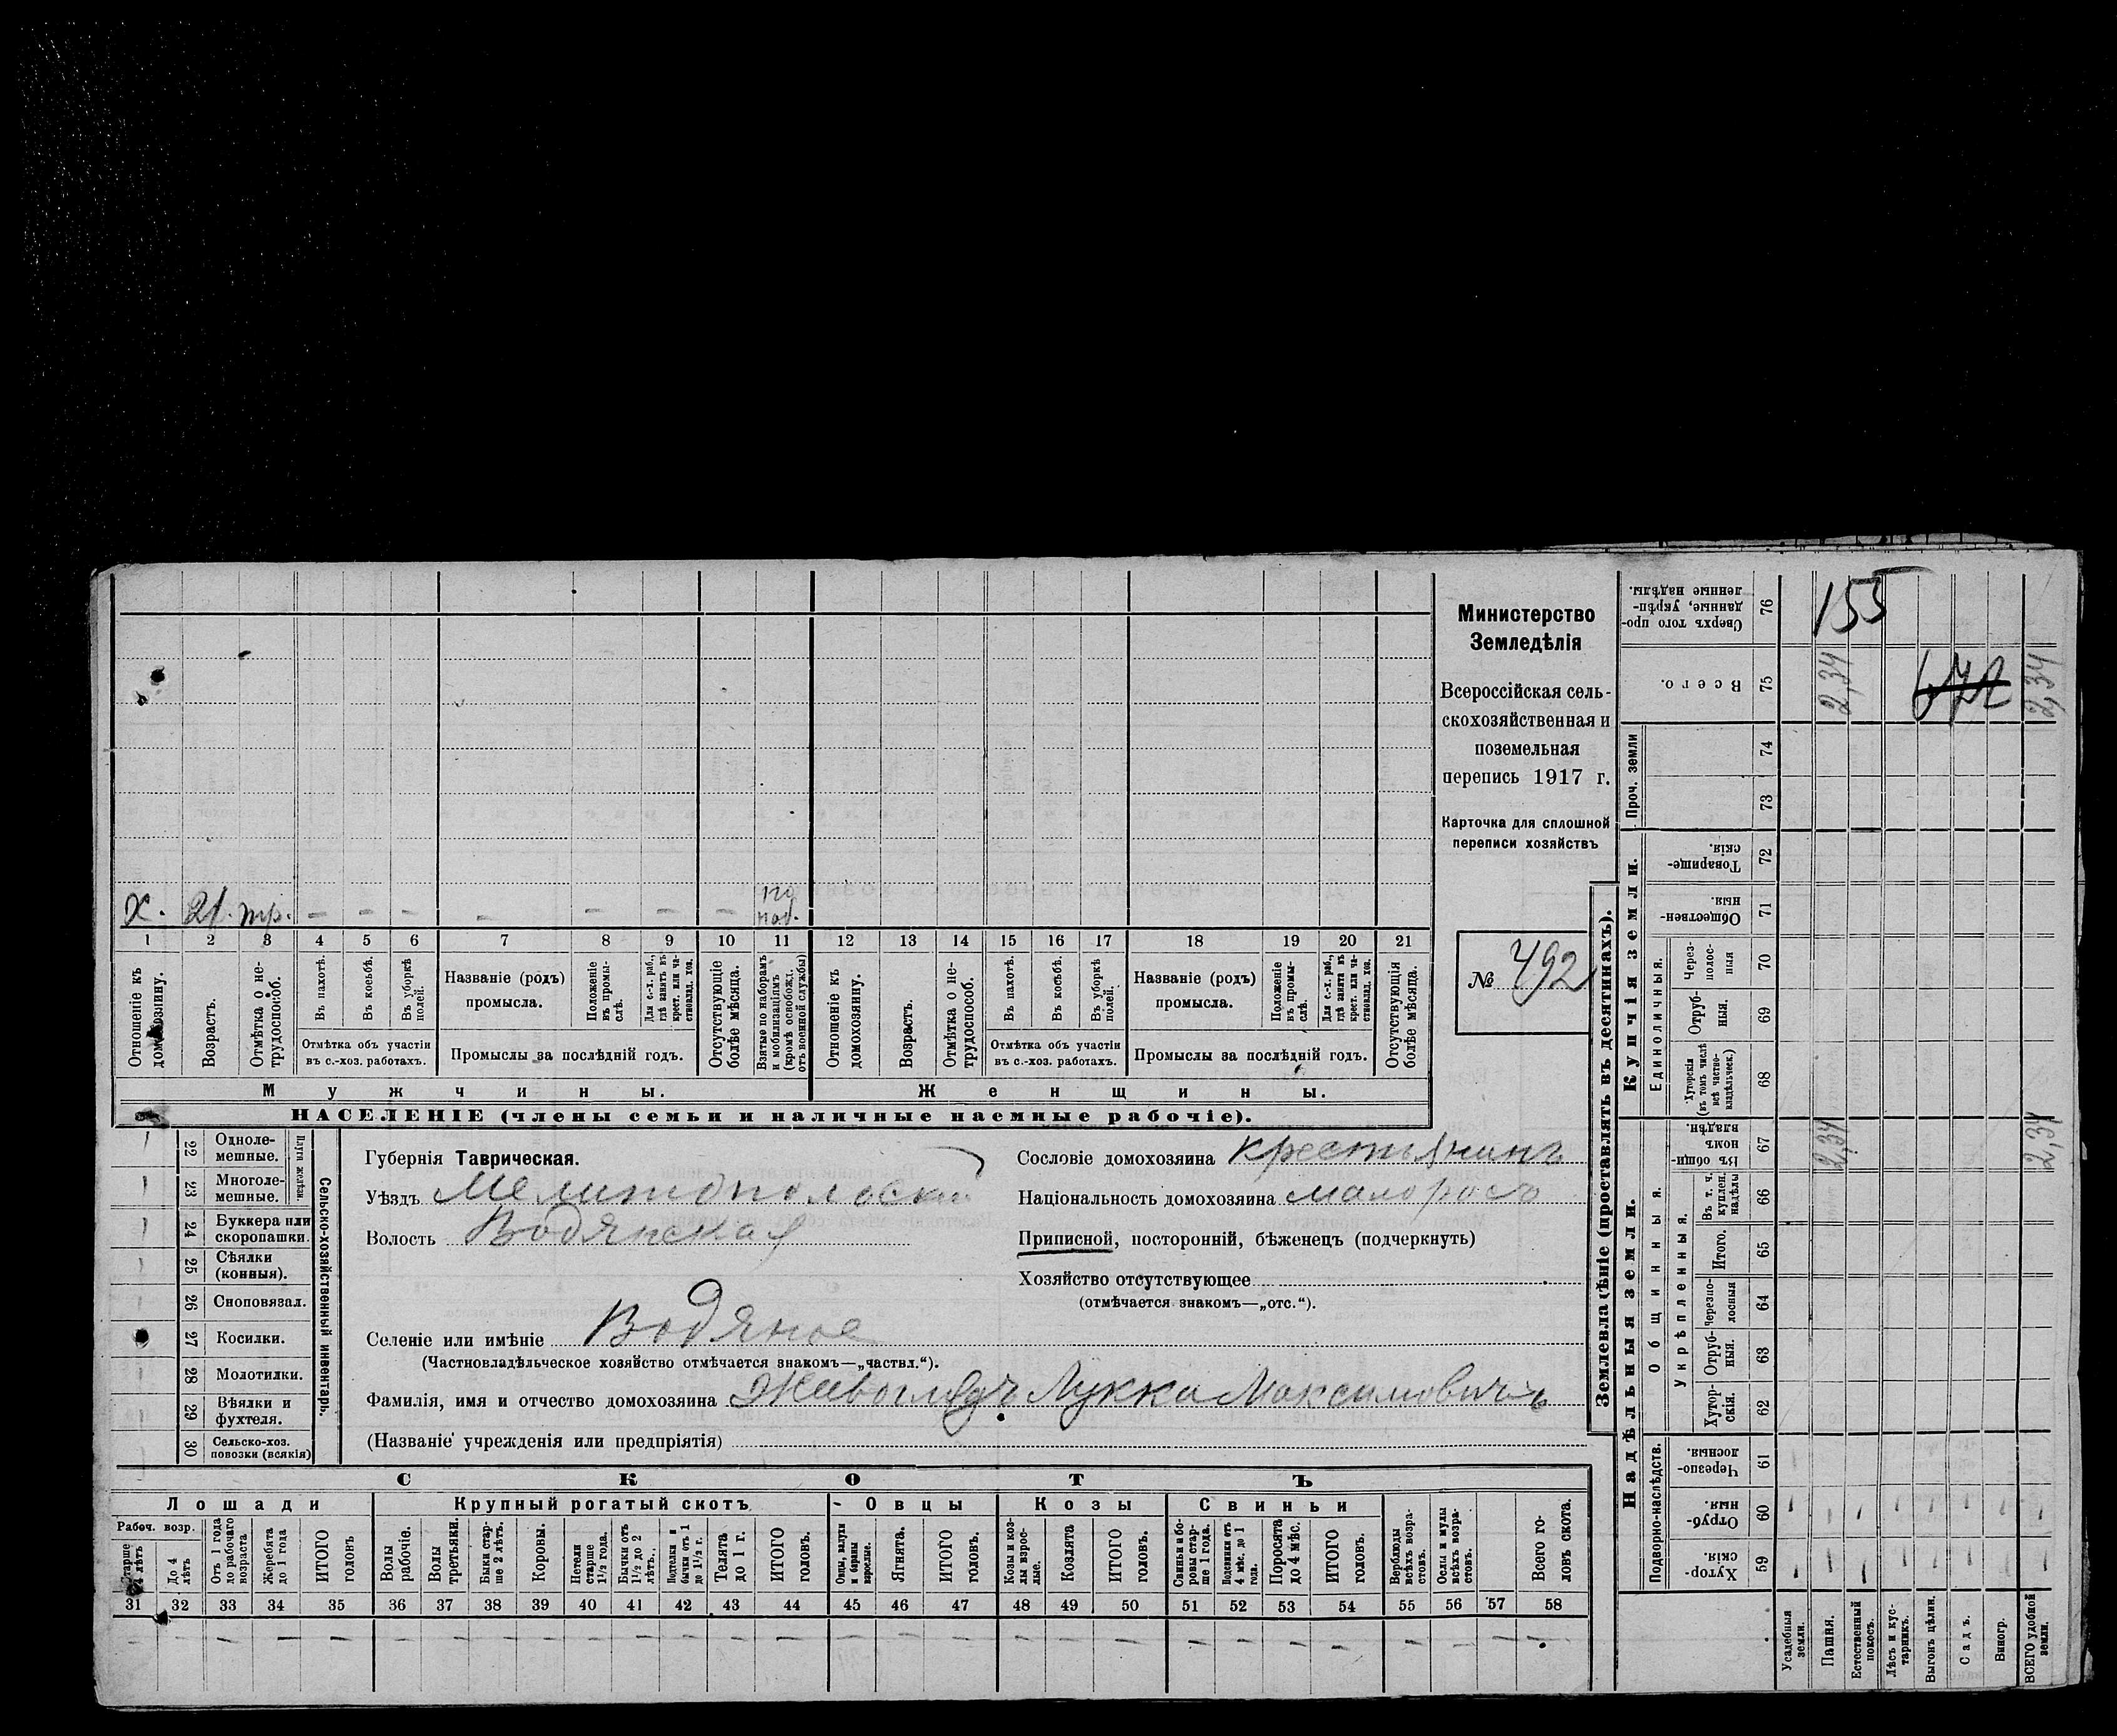 х. 21. тр. – – – – – – – по наб.
1 2 3 4 5 6 7 8 9 10 11 12 13 14 15 16 17 18 19 20 21
Отношеніе къ домохозяину.
Возрастъ.
Отмѣтка о нетрудоспособ.
Въ пахотѣ.
Въ косьбѣ.
Въ уборкѣ полей.
Отмѣтка объ участіи въ с.-хоз. работахъ.
Названіе (родъ) промысла.
Положеніе въ промыслѣ.
Для с.-х. раб., гдѣ занятъ въ крест. или частновлад. хоз.
Промыслы за послѣдній годъ.
Отсутствующіе болѣе мѣсяца.
Взятые по наборамъ и мобилизаціямъ (кромѣ освобожд. отъ военной службы)
Отношеніе къ домохозяину.
Возрастъ.
Отмѣтка о нетрудоспособ.
Въ пахотѣ.
Въ косьбѣ.
Въ уборкѣ полей.
Отмѣтка объ участіи въ с.-хоз. работахъ.
Названіе (родъ) промысла.
Положеніе въ промыслѣ.
Для с.-х. раб., гдѣ занятъ въ крест. или частновлад. хоз.
Промыслы за послѣдній годъ.
Отсутствующія болѣе мѣсяца.
Мужчины.
Женщины.
НАСЕЛЕНІЕ (члены семьи и наличные наемные рабочіе).
Министерство
Земледѣлія
Всероссійская сель-
скохозяйственная и
поземельная
перепись 1917 г.
Карточка для сплошной
переписи хозяйствъ
№ 492
22 Одноле-мешные.
23 Многоле-мешные.
Плуги желѣзн.
24 Буккера или скоропашки.
25 Сѣялки (конныя).
26 Сноповязал.
27 Косилки.
28 Молотилки.
29 Вѣялки и фухтеля.
30 Сельско-хоз. повозки (всякія)
Сельско-хозяйственный инвентарь.
Губернія Таврическая.
Уѣздъ Мелитопольскій
Волость Водянская
Селеніе или имѣніе Водяное
(Частновладѣльческое хозяйство отмѣчается знакомъ—„частвл.“).
Фамилія, имя и отчество домохозяина Живоглядъ Лукка Максимовичъ
(Названіе учрежденія или предпріятія)
Сословіе домохозяина крестьянинъ
Національность домохозяина малоросъ
Приписной, посторонній, бѣженецъ (подчеркнуть)
Хозяйство отсутствующее
(отмѣчается знакомъ—„отс.“).
СКОТЪ
Лошади
Крупный рогатый скотъ
Овцы
Козы
Свиньи
Рабоч. возр.
Старше 4 лѣтъ
До 4 лѣтъ
Отъ 1 года до рабочаго возраста
Жеребята до 1 года
ИТОГО головъ
Волы рабочіе.
Волы третьяки.
Быки старше 2 лѣтъ.
Коровы.
Нетели старше 1½ года.
Бычки отъ 1½ до 2 лѣтъ.
Подтелки и бычки отъ 1 до 1½ г.
Телята до 1 г.
ИТОГО головъ.
Овцы, валухи и бараны взрослые.
Ягнята.
ИТОГО головъ.
Козы и козлы взрослые.
Козлята
ИТОГО головъ.
Свиньи и боровы старше 1 года.
Подсвинки отъ 4 мѣс. до 1 года.
Поросята до 4 мѣс.
ИТОГО головъ.
Верблюды всѣхъ возрастовъ.
Ослы и мулы всѣхъ возрастовъ.
Всего головъ скота.
31 32 33 34 35 36 37 38 39 40 41 42 43 44 45 46 47 48 49 50 51 52 53 54 55 56 57 58
Землевладѣніе (проставлять въ десятинахъ).
Надѣльныя земли.
Купчія земли.
Проч. земли
Подворно-наслѣдств.
Общинныя
Укрѣпленныя.
Единоличныя.
Сверхъ того проданные, укрѣпленные надѣлы. 76 155
Всего. 75 2,34 672 2,34
74
73
Товарищескія. 72
Общественныя. 71
Черезполосныя 70
Отрубныя. 69
Хуторскія (въ томъ числѣ всѣ частновладѣльческ.) 68
Въ общинномъ владѣн. 67 2,34 2,34
Въ т. ч. куплен. надѣлы 66
Итого. 65
Черезполосныя 64
Отрубныя. 63
Хуторскія. 62
Черезполосныя 61
Отрубныя. 60
Хуторскія. 59
Усадебныя земли.
Пашня.
Естественный покосъ.
Лѣсъ и кустарникъ.
Выгонъ цѣлин.
Садъ.
Виногр.
ВСЕГО удобной земли.